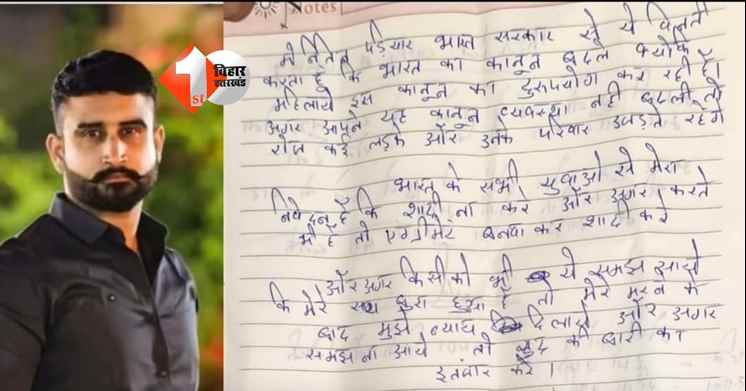 Notes
मै नितिन पडियार भारत सरकार से ये विनती
करता हुं कि भारत का कानून बदल क्योकि
महिलाये इस कानून का दुरुपयोग कर रही है।
अगर आपने यह कानून व्यवस्था नही बदली तो
रोज कई लड़के और उनके परिवार उजड़ते रहेगे
भारत के सभी युवाओ से मेरा
निवेदन है कि शादी ना करे और अगर करते
भी है तो एग्रीमेंट बनवा कर शादी करे
और अगर किसी को भी ये समझ आये
कि मेरे साथ बुरा हुआ है तो मेरे मरने के
बाद मुझे न्याय दिलाये और अगर
समझ ना आये तो खुद की बारी का
इतंजार करे।
1st
बिहार
झारखंड